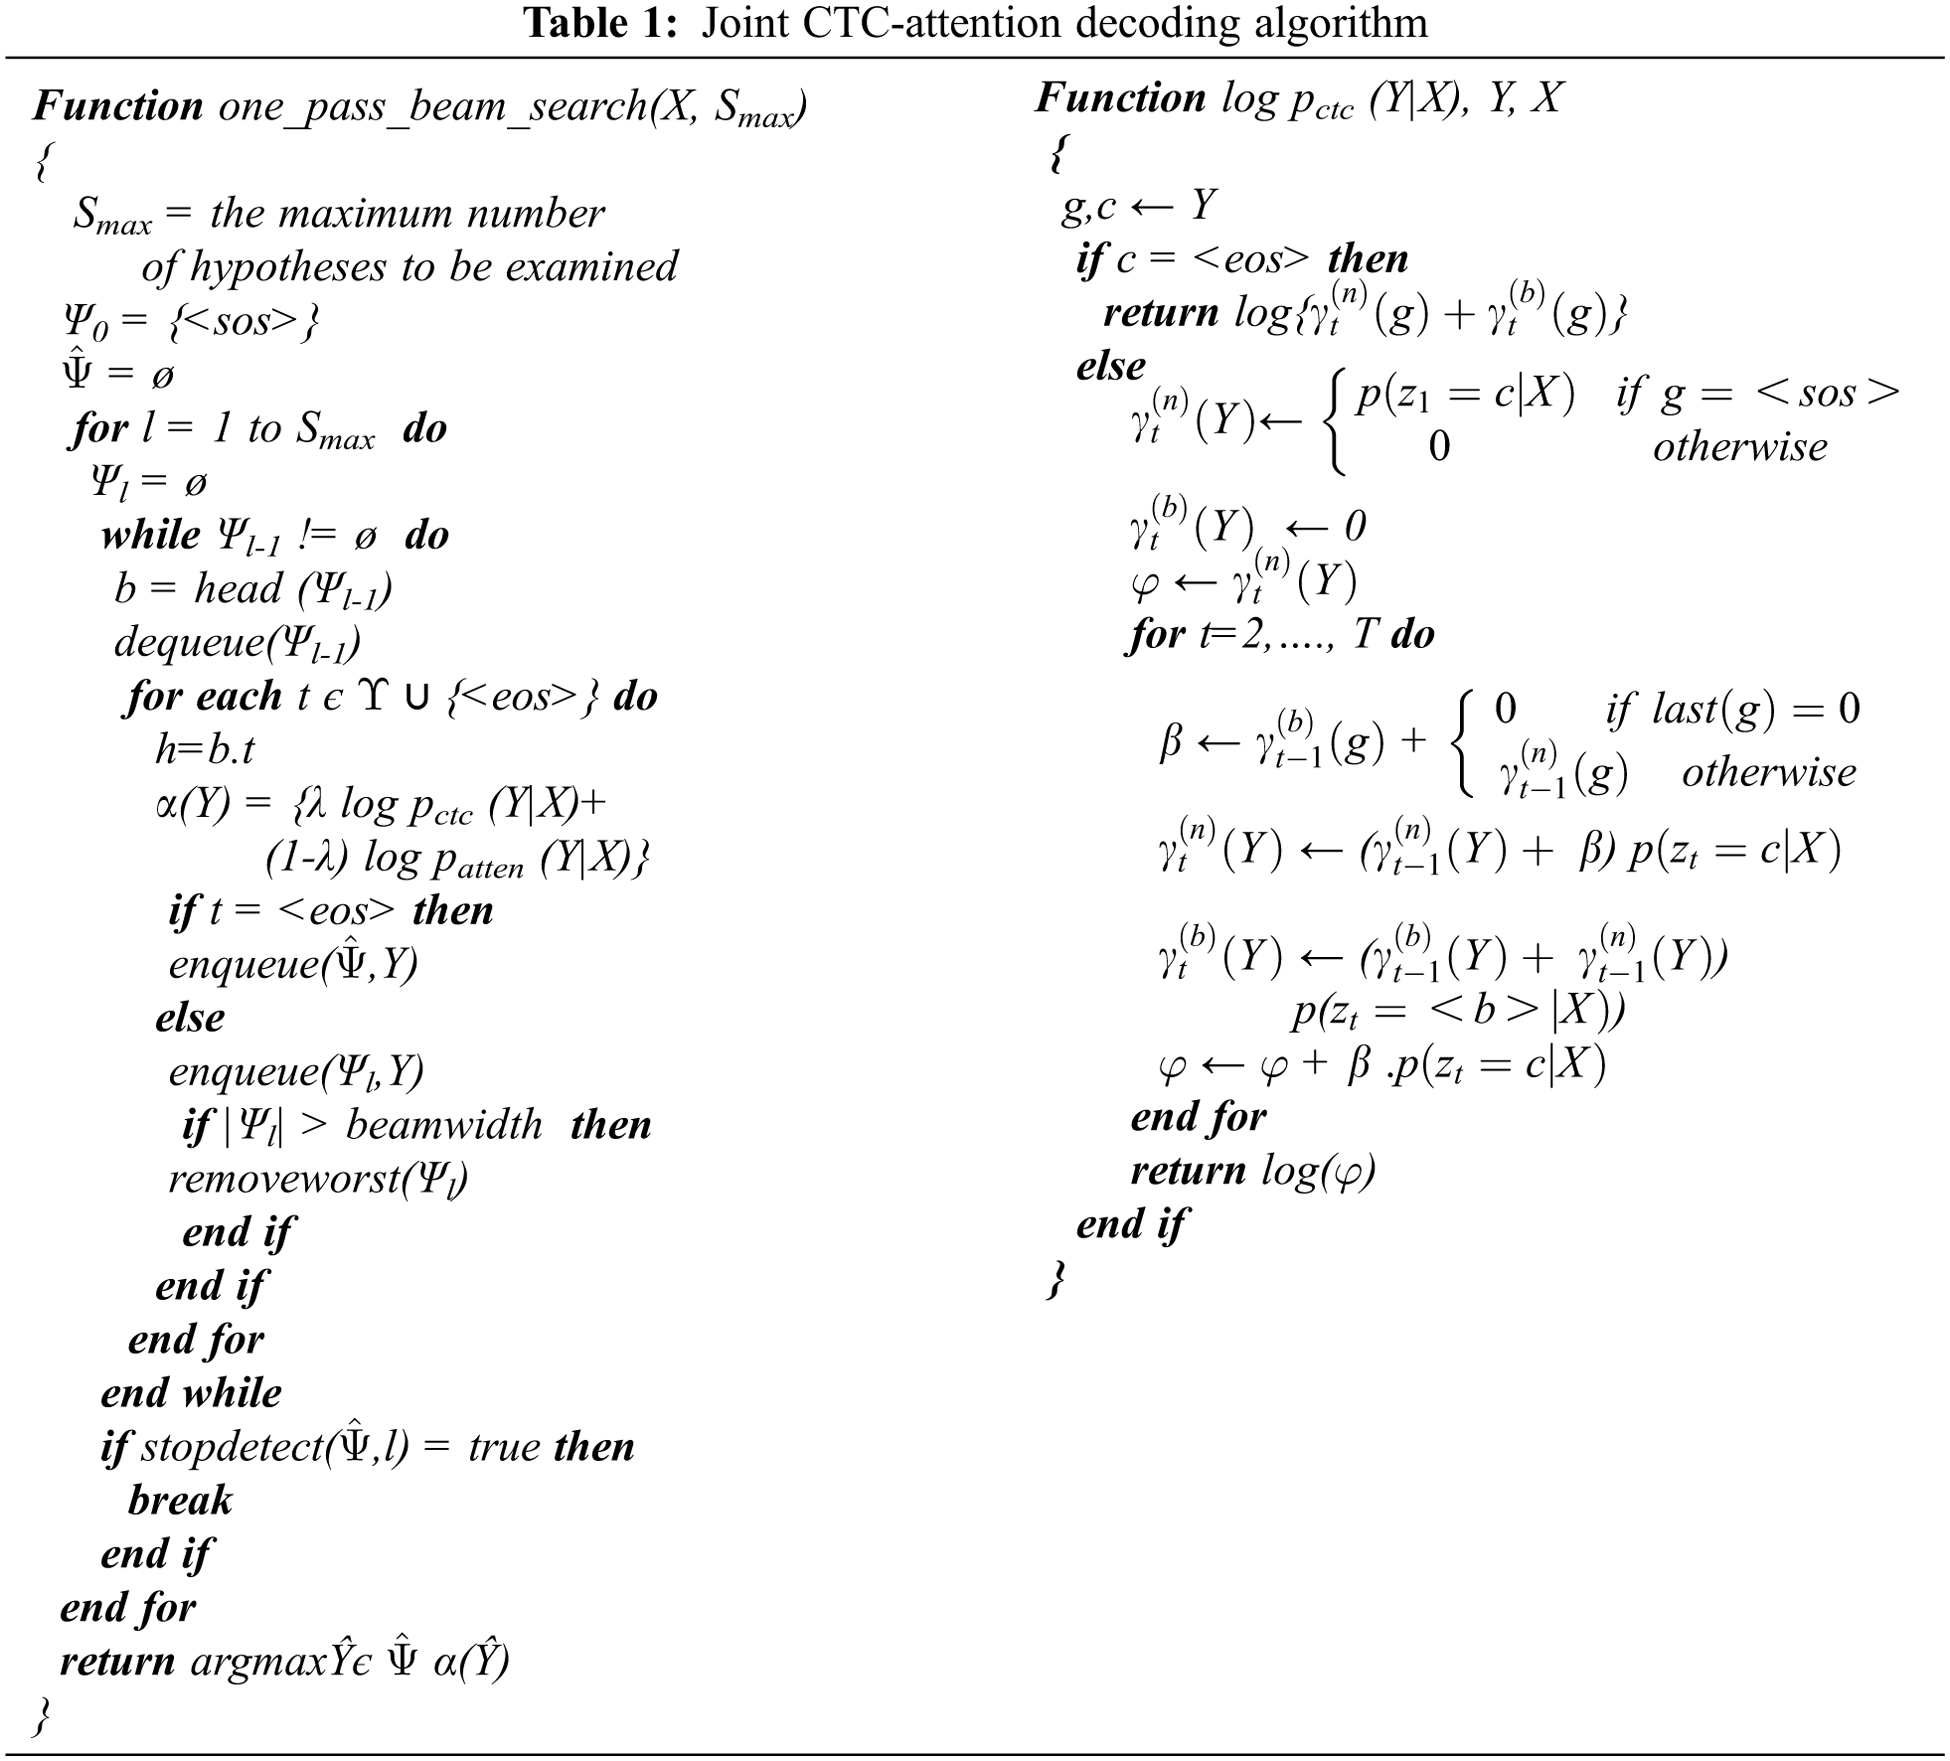 Table 1: Joint CTC-attention decoding algorithm
Function one_pass_beam_search(X, Smax)
{
Smax = the maximum number
of hypotheses to be examined
Ψ0 = {<sos>}
Ψ̂ = ø
for l = 1 to Smax do
Ψl = ø
while Ψl-1 != ø do
b = head (Ψl-1)
dequeue(Ψl-1)
for each t ϵ ϒ ∪ {<eos>} do
h=b.t
α(Y) = {λ log pctc (Y|X)+
(1-λ) log patten (Y|X)}
if t = <eos> then
enqueue(Ψ̂,Y)
else
enqueue(Ψl,Y)
if |Ψl| > beamwidth then
removeworst(Ψl)
end if
end if
end for
end while
if stopdetect(Ψ̂,l) = true then
break
end if
end for
return argmaxŶϵ Ψ̂ α(Ŷ)
}
Function log pctc (Y|X), Y, X
{
g,c ← Y
if c = <eos> then
return log{γt(n)(g) + γt(b)(g)}
else
γt(n)(Y)← { p(z1 = c|X) if g = <sos>
0 otherwise
γt(b)(Y) ← 0
φ ← γt(n)(Y)
for t=2,...., T do
β ← γt−1(b)(g) + { 0 if last(g) = 0
γt−1(n)(g) otherwise
γt(n)(Y) ← (γt−1(n)(Y) + β) p(zt = c|X)
γt(b)(Y) ← (γt−1(b)(Y) + γt−1(n)(Y))
p(zt = <b>|X))
φ ← φ + β .p(zt = c|X)
end for
return log(φ)
end if
}